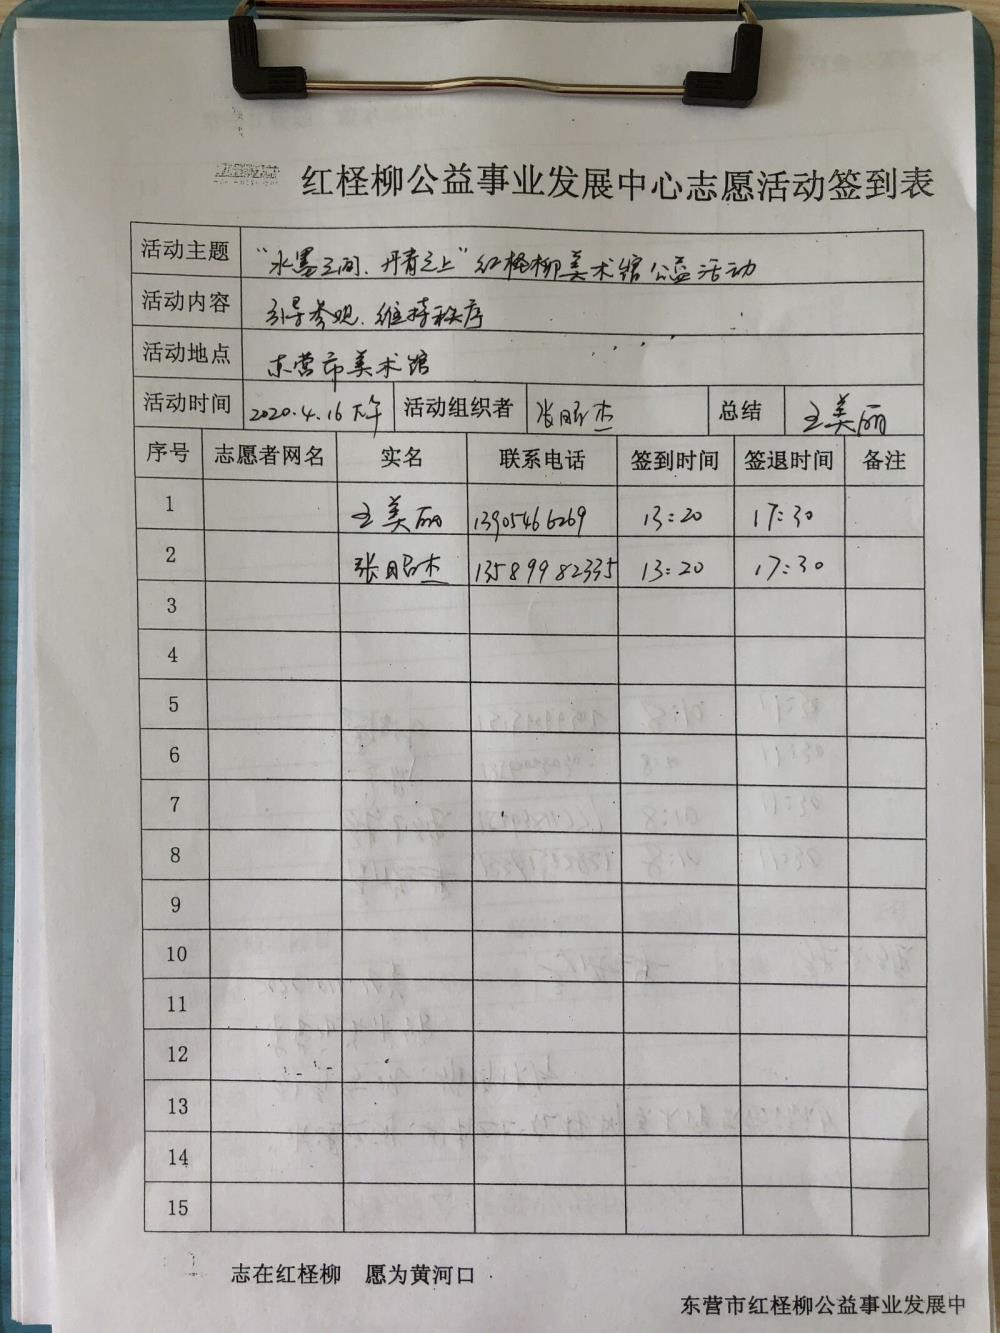 红柽柳公益事业发展中心志愿活动签到表
活动主题 “水墨之间、丹青之上”红柽柳美术馆公益活动
活动内容 引导参观、维持秩序
活动地点 东营市美术馆
活动时间 2020.4.16下午 活动组织者 张昭杰 总结 王美丽
序号 志愿者网名 实名 联系电话 签到时间 签退时间 备注
1 王美丽 13905466269 13:20 17:30
2 张昭杰 13589982335 13:20 17:30
3
4
5
6
7
8
9
10
11
12
13
14
15
志在红柽柳 愿为黄河口
东营市红柽柳公益事业发展中